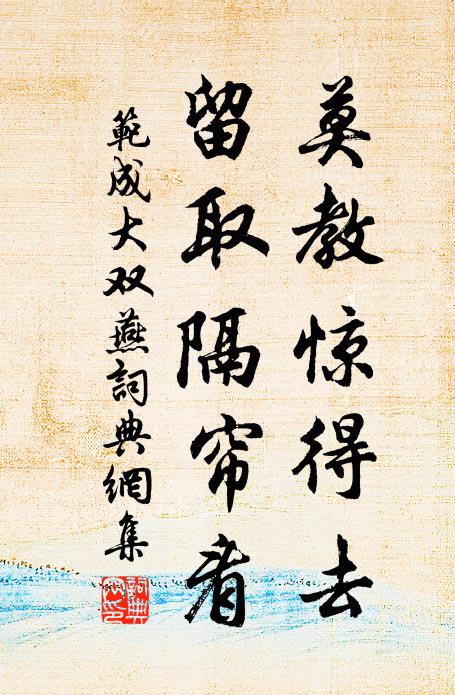 莫教惊得去
留取隔帘看
範成大双燕詞典網集